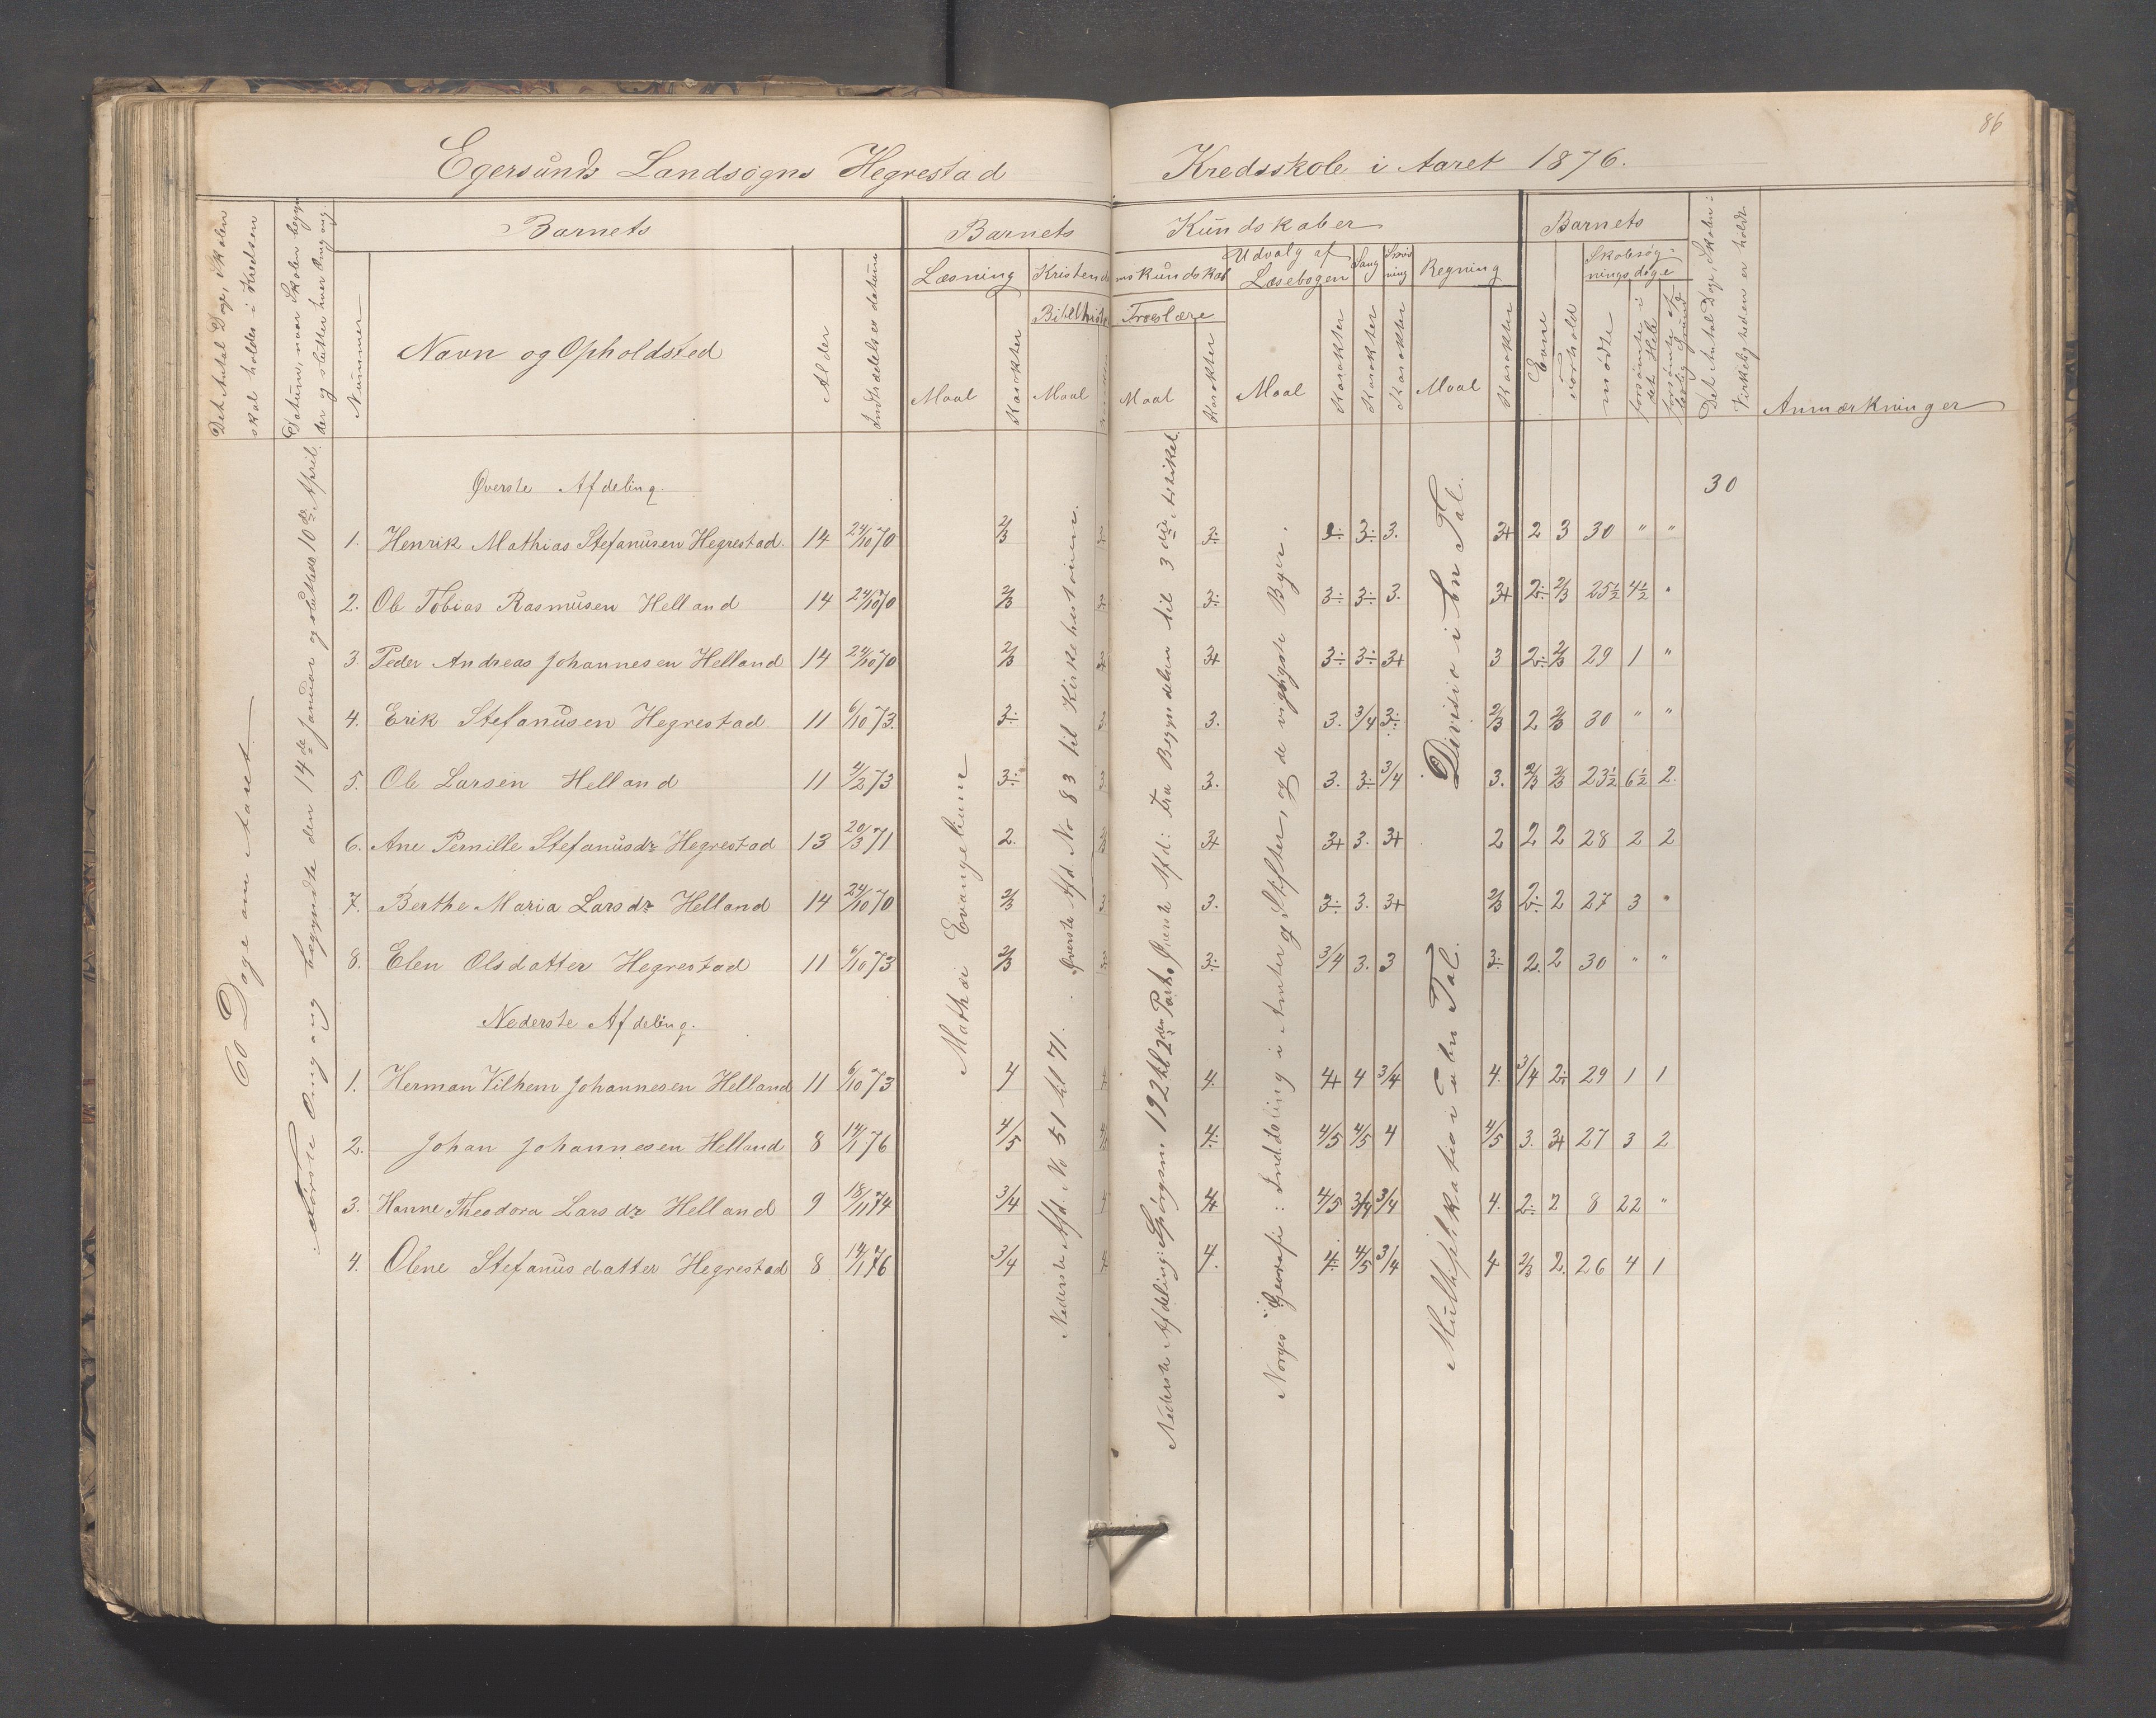 86
Egersunds Landsogns Hegrestad Kredsskole i Aaret 1876.
Det Antal Dage, Skolen skal holdes i Kredsen
Datum, naar Skolen begynder og slutter hver Omgang.
Nummer
Barnets
Navn og Opholdsted
Alder
Indtrædelses datum
Barnets Kundskaber
Læsning
Maal
Karakter
Kristendomskundskab
Bibelhistorie
Maal
Troeslære
Maal
Karakter
Udvalg af Læsebogen
Maal
Karakter
Sang
Karakter
Skrivning
Karakter
Regning
Maal
Karakter
Barnets
Evne
Forhold
Skolesøgningsdage
mødte
forsømte i det Hele
forsømte af lovlig Grund
Det Antal Dage, Skolen i Virkeligheden er holdt
Anmærkninger
60 Dage om Aaret
Første Omgang begyndte den 14de Januar og sluttede 10de April.
Mathæi Evangelium
Øverste Afd. No 83 til Kirkehistorien.
Nederste Afd. No 51 til 71.
Øverste Afd: Fra Begyndelsen til 3die Artikel.
Nederste Afdeling: Spørgsm. 192 til 2den Part.
Norges Geografi: Inddeling i Amter og Stifter, og de vigtigste Byer.
Division i Een Tal.
Multiplikation i Eeen Tal.
Øverste Afdeling.
30
1. Henrik Mathias Stefanusen Hegrestad. 14 24/10 70 2/3 3÷ 3÷ 3÷ 3. 3+ 2 3 30 " "
2. Ole Tobias Rasmusen Helland 14 24/10 70 2/3 3÷ 3÷ 3÷ 3. 3+ 2÷ 2/3 25½ 4½ "
3 Peder Andreas Johannesen Helland 14 24/10 70 2/3 3+ 3÷ 3÷ 3+ 3 2÷ 2/3 29 1 "
4. Erik Stefanusen Hegrestad 11 6/10 73. 3÷ 3. 3. 3. 3/4 3÷ 2/3 2 2/3 30 " "
5. Ole Larsen Helland 11 4/2 73 3÷ 3. 3. 3÷ 3/4 3. 2/3 2/3 23½ 6½ 2.
6. Ane Pernille Stefanusdr Hegrestad 13 20/3 71 2. 3+ 3+ 3. 3+ 2 2 2 28 2 2
7. Berthe Maria Larsdr Helland 14 24/10 70 2/3 3. 3÷ 3. 3+ 2/3 2÷ 2 27 3 "
8. Elen Olsdatter Hegrestad 11 6/10 73 2/3 3÷ 3/4 3. 3 3÷ 2. 2 30 " "
Nederste Afdeling.
1. Herman Vilhem Johannesen Helland 11 6/10 73 4 4. 4+ 4 3/4 4. 3/4 2÷ 29 1 1
2. Johan Johannesen Helland 8 14/1 76 4/5 4÷ 4/5 4/5 4 4/5 3. 3+ 27 3 2
3. Hanne Theodora Larsdr Helland 9 18/11 74 3/4 4+ 4/5 3/4 3/4 4. 2÷ 2 8 22 "
4. Olene Stefanusdatter Hegrestad 8 14/1 76 3/4 4. 4÷ 4/5 3/4 4 2/3 2. 26 4 1